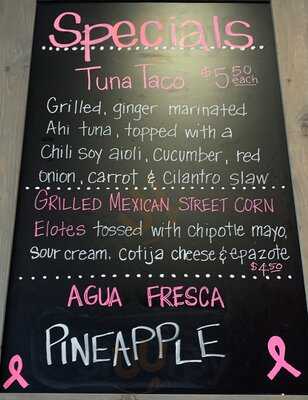 Specials
Tuna Taco $5.50 each
Grilled, ginger marinated
Ahi tuna, topped with a
Chili soy aioli, Cucumber, red
onion, carrot & Cilantro slaw
GRILLED MEXICAN STREET CORN
Elotes tossed with chipotle mayo,
Sour cream, Cotija cheese & epazote
$4.50
AGUA FRESCA
PINEAPPLE